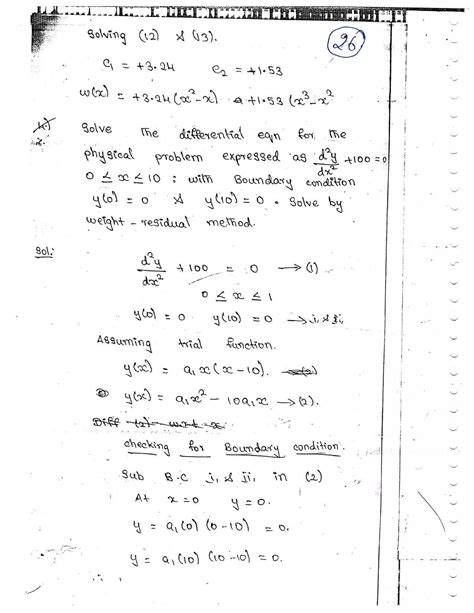 Solving (12) & (13).
26
C₁ = +3.24 C₂ = +1.53
w(x) = +3.24(x²-x) +1.53(x³-x²
Solve the differential eqn for the
physical problem expressed as d²y/dx² +100 = 0
0 ≤ x ≤ 10 : with Boundary condition
y(0) = 0 & y(10) = 0 . Solve by
weight-residual method.
Sol:
d²y/dx² + 100 = 0 → (1)
0 ≤ x ≤ 1
y(0) = 0 y(10) = 0 → i, & ii,
Assuming trial function.
y(x) = a₁x(x-10). (2)
y(x) = a₁x² - 10a₁x → (2).
Diff (2) w.r.t x
checking for Boundary condition.
Sub B.C i, & ii, in (2)
At x=0 y=0.
y = a₁(0)(0-10) = 0.
y = a₁(10)(10-10) = 0.